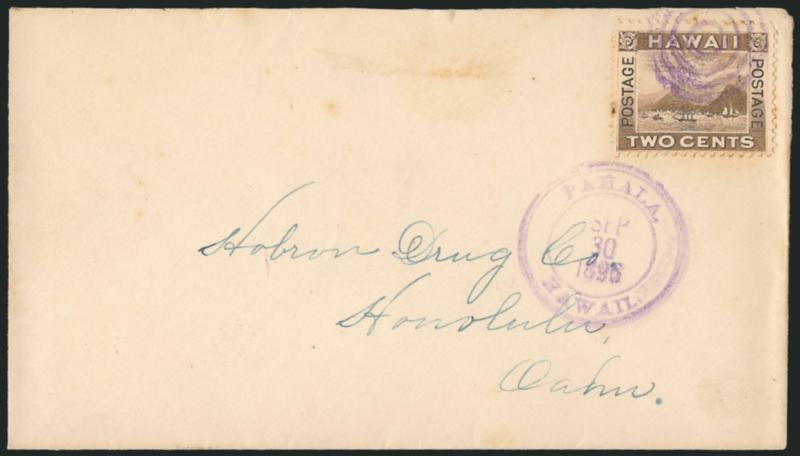 HAWAII
POSTAGE
POSTAGE
TWO CENTS
PAHALA,
SEP
30
1895
HAWAII.
Hobron Drug Co.
Honolulu,
Oahu.